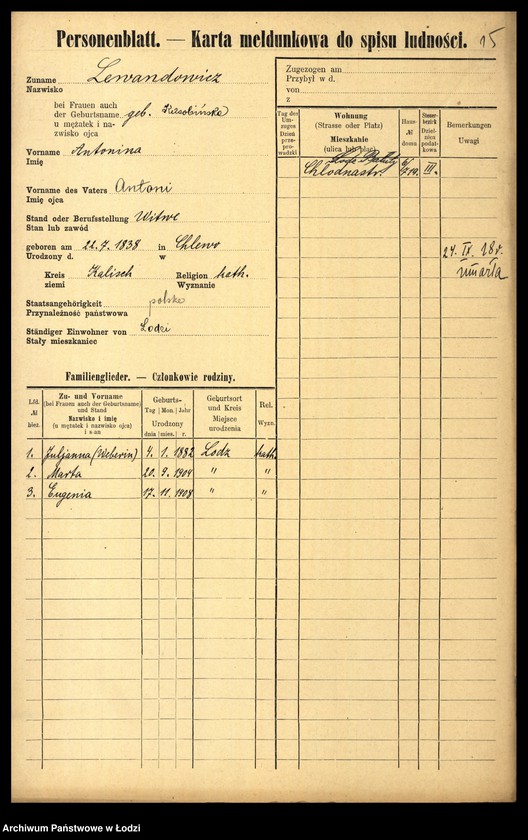 Personenblatt. — Karta meldunkowa do spisu ludności. 15
Zuname Lewandowicz
Nazwisko
bei Frauen auch
der Geburtsname geb.
u mężatek i na-
zwisko ojca
Vorname Antonina
Imię
Vorname des Vaters Antoni
Imię ojca
Stand oder Berufsstellung Witwe
Stan lub zawód
geboren am 22. 7. 1838 in Chlewo
Urodzony d. w
Kreis Kalisch Religion kath.
ziemi Wyznanie
Staatsangehörigkeit polska
Przynależność państwowa
Ständiger Einwohner von Lodzi
Stały mieszkaniec
Zugezogen am
Przybył w d.
von
z
Tag der Um-zuges Dzień prze-pro-wadzki
Wohnung
(Strasse oder Platz)
Mieszkanie
(ulica lub plac)
Haus-
№
domu
Steuer-bezirk Dzielnica podat-kowa
Bemerkungen
Uwagi
Chłodnastr. III.
24. IX. 18 r.
umarła
Familienglieder. — Członkowie rodziny.
№
Zu- und Vorname
(bei Frauen auch der Geburtsname)
und Stand
Nazwisko i imię
(u mężatek i nazwisko ojca)
i stan
Geburts-
Tag Mon. Jahr
Urodzony
dnia mies. r.
Geburtsort
und Kreis
Miejsce
urodzenia
Rel.
Wyzn.
1. Juljanna (Weberin) 4. 1. 1882 Lodz kath.
2. Marta 20. 9. 1904 " "
3. Eugenia 17. 11. 1908 " "
Archiwum Państwowe w Łodzi